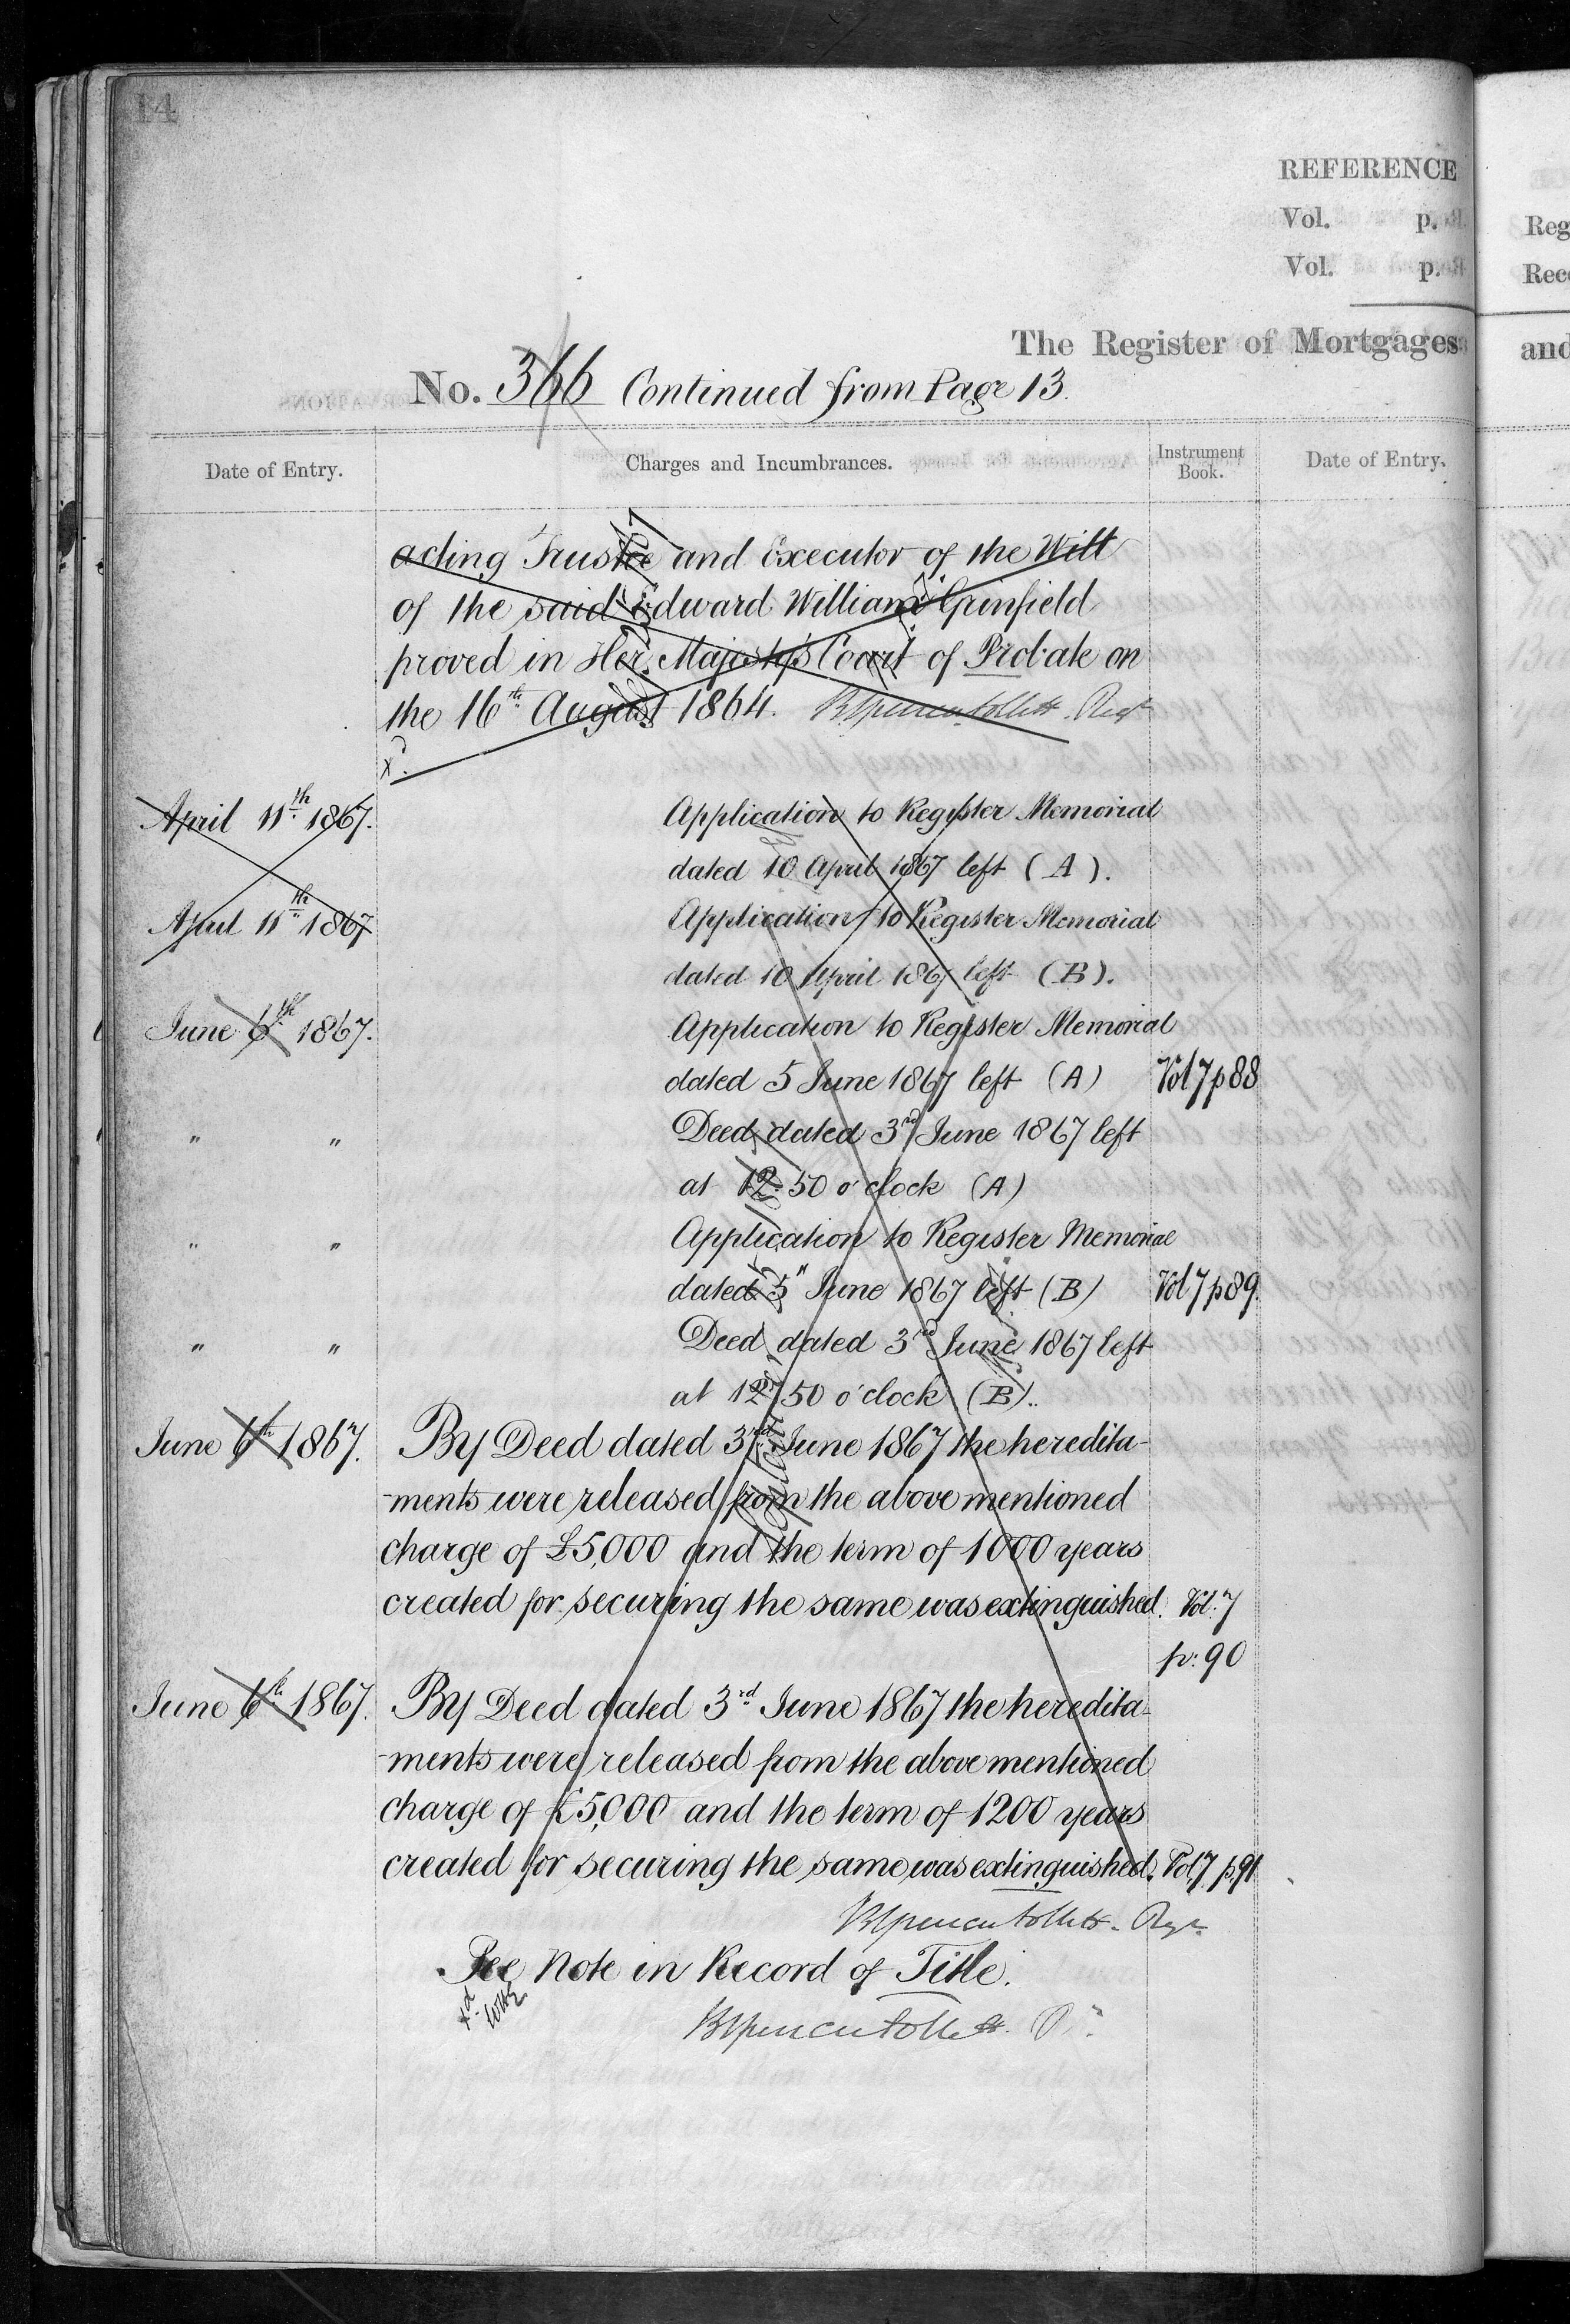 14
REFERENCE
Vol. p.
Vol. p.
The Register of Mortgages
No. 366 Continued from Page 13.
Date of Entry. Charges and Incumbrances. Instrument Book. Date of Entry.
acting Trustee and Executor of the Will
of the said Edward William Grinfield
proved in Her Majesty's Court of Probate on
the 16th August 1864. BSpencer Follett Regr
xd
April 11th 1867. Application to Register Memorial
dated 10 April 1867 left (A).
April 11th 1867 Application to Register Memorial
dated 10 April 1867 left (B).
June 6th 1867. Application to Register Memorial
dated 5 June 1867 left (A) Vol 7 p 88
" " Deed dated 3rd June 1867 left
at 12.50 o'clock (A)
" " Application to Register Memorial
dated 5" June 1867 left (B) Vol 7 p 89.
" " Deed dated 3rd June 1867 left
at 12.50 o'clock (B).
June 6th 1867. By Deed dated 3rd June 1867 the heredita-
-ments were released from the above mentioned
charge of £5,000 and the term of 1000 years
created for securing the same was extinguished. Vol: 7
p: 90
June 6th 1867. By Deed dated 3rd June 1867 the heredita-
-ments were released from the above mentioned
charge of £5,000 and the term of 1200 years
created for securing the same was extinguished. Vol. 7 p. 91
BSpencer Follett. Regr.
See Note in Record of Title.
xd
BSpencer Follett.
Reg
Rec
and